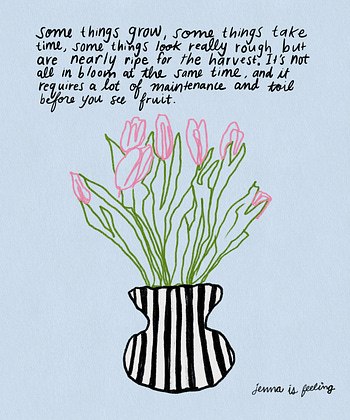 some things grow, some things take
time, some things look really rough but
are nearly ripe for the harvest. It's not
all in bloom at the same time, and it
requires a lot of maintenance and toil
before you see fruit.
jenna is feeling